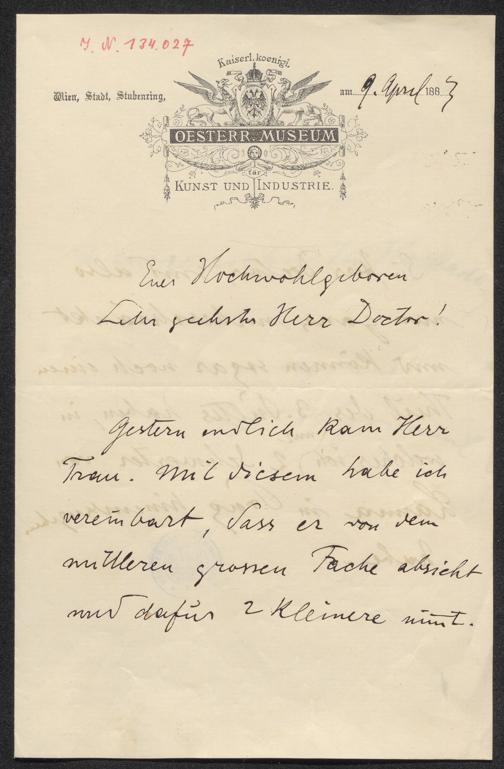 I. N. 134.027
Kaiserl. koenigl.
Wien, Stadt, Stubenring,
am 9. April 1887
OESTERR. MUSEUM
für
KUNST UND INDUSTRIE.
Euer Hochwohlgeboren
Sehr geehrter Herr Doctor!
Gestern endlich kam Herr
Trau. Mit diesem habe ich
vereinbart, dass er von dem
mittleren grossen Fache absieht
und dafür 2 kleinere nimt.